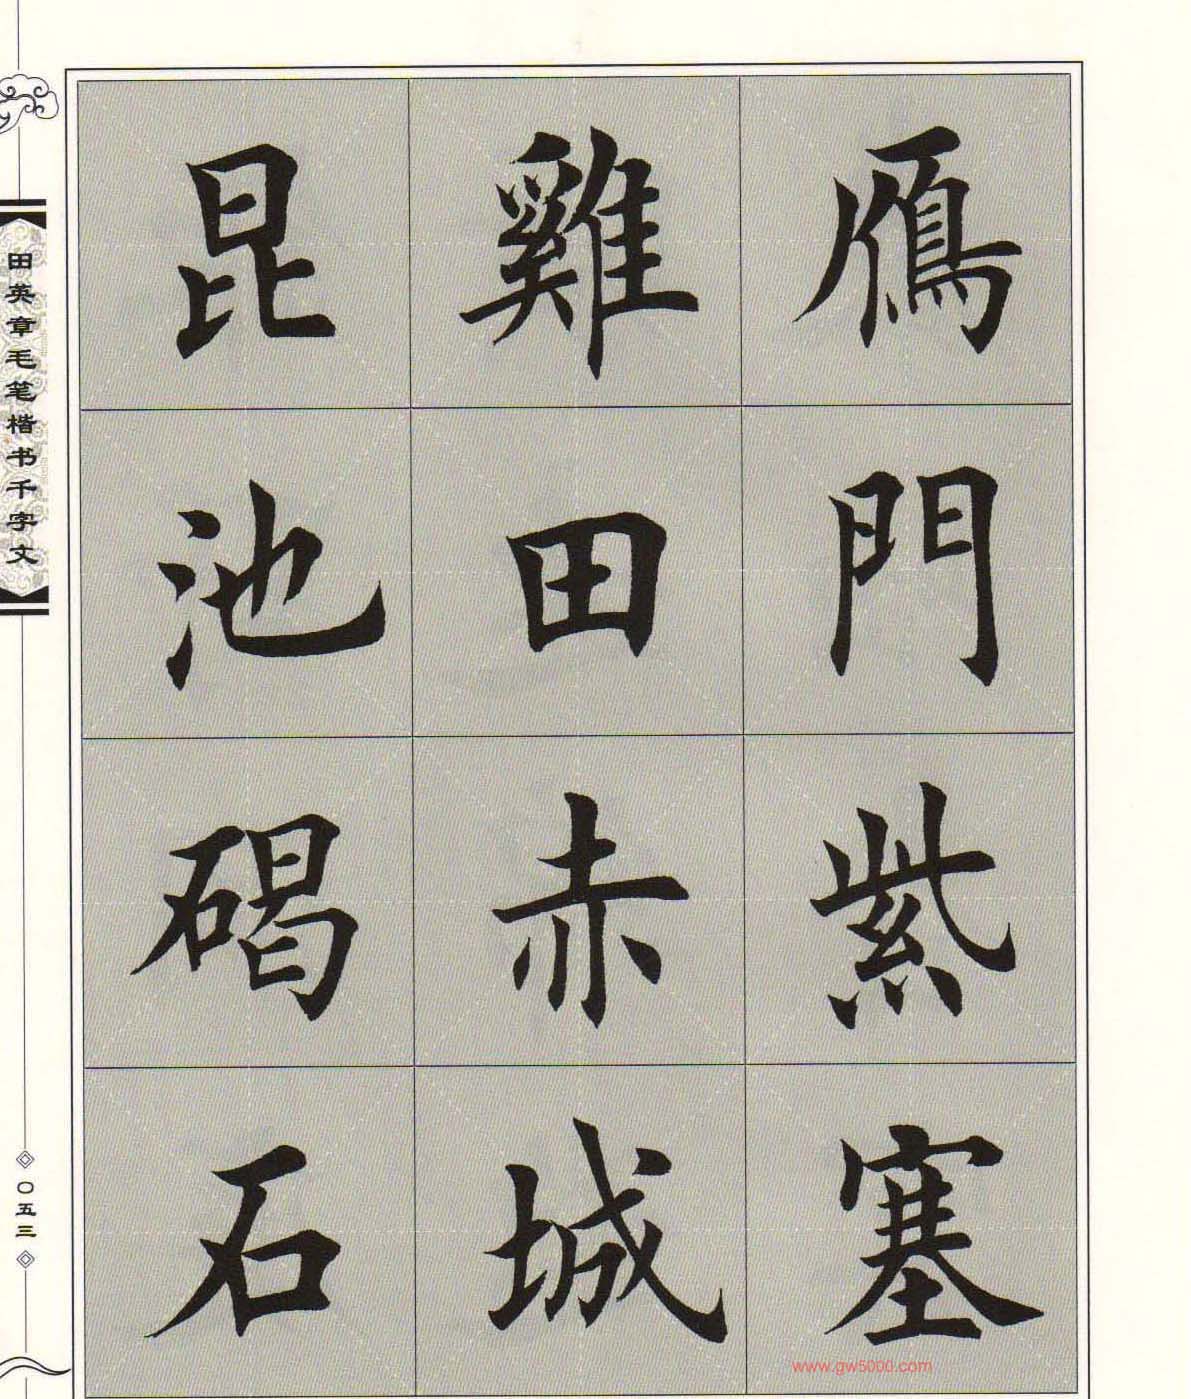 鴈門紫塞
雞田赤城
昆池碣石
田英章毛笔楷书千字文
〇五三
www.gw5000.com